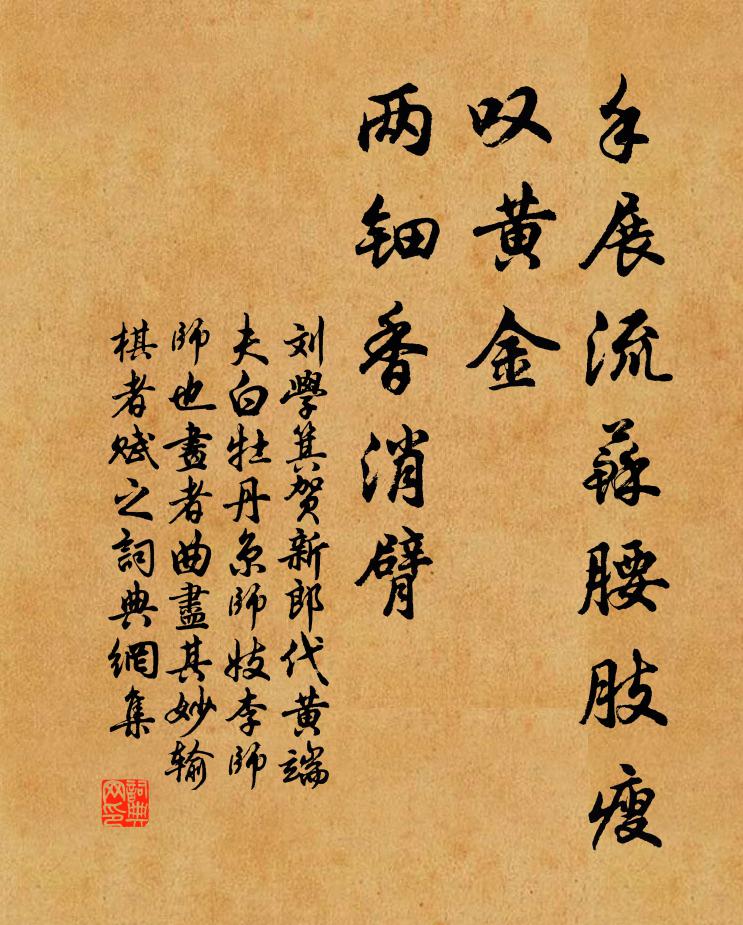 手展流蘇腰肢瘦
叹黄金
两钿香消臂
刘學箕贺新郎代黄端
夫白牡丹京師妓李師
師也畫者曲盡其妙输
棋者赋之詞典網集
詞典网印